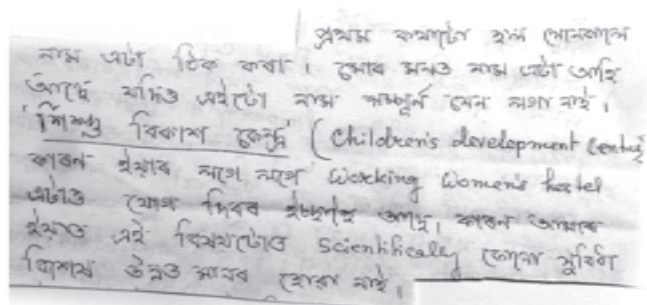 প্ৰথম কথাটো হ'ল সোনকালে
নাম এটা ঠিক কৰা। মোৰ মনত নাম এটা আহি
আছে যদিও এইটো নাম সম্পূৰ্ণ যেন লগা নাই।
'শিশু বিকাশ কেন্দ্ৰ' (Children's development Centre)
কাৰন ইয়াৰ লগে লগে Working Women's hostel
এটাও যোগ দিবৰ ইচ্ছাও আছে। কাৰন আমাৰ
ইয়াত এই বিষয়টোত Scientificaly কোনো সুবিধা
বিশেষ উন্নত মানৰ হোৱা নাই।